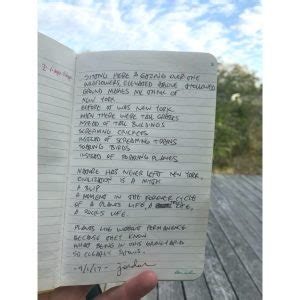 SITTING HERE & GAZING OVER THE
WILDFLOWERS, ELEVATED ABOVE
GROUND MAKES ME THINK OF
NEW YORK
BEFORE IT WAS NEW YORK.
WHEN THERE WERE TALL GRASSES
INSTEAD OF TALL BUILDINGS
SCREAMING CRICKETS
INSTEAD OF SCREAMING TRAINS
SOARING BIRDS
INSTEAD OF ROARING PLANES
NATURE HAS NEVER LEFT NEW YORK,
CIVILIZATION IS A MYTH
A BLIP
A MOMENT IN THE FOREVER CYCLES
OF A PLANTS LIFE, A LIFE,
A ROCKS LIFE
PLANTS LIVE WITHOUT PERMANENCE
BECAUSE THEY KNOW
WHAT BEING IN THIS
SO CLEARLY SHOWS.